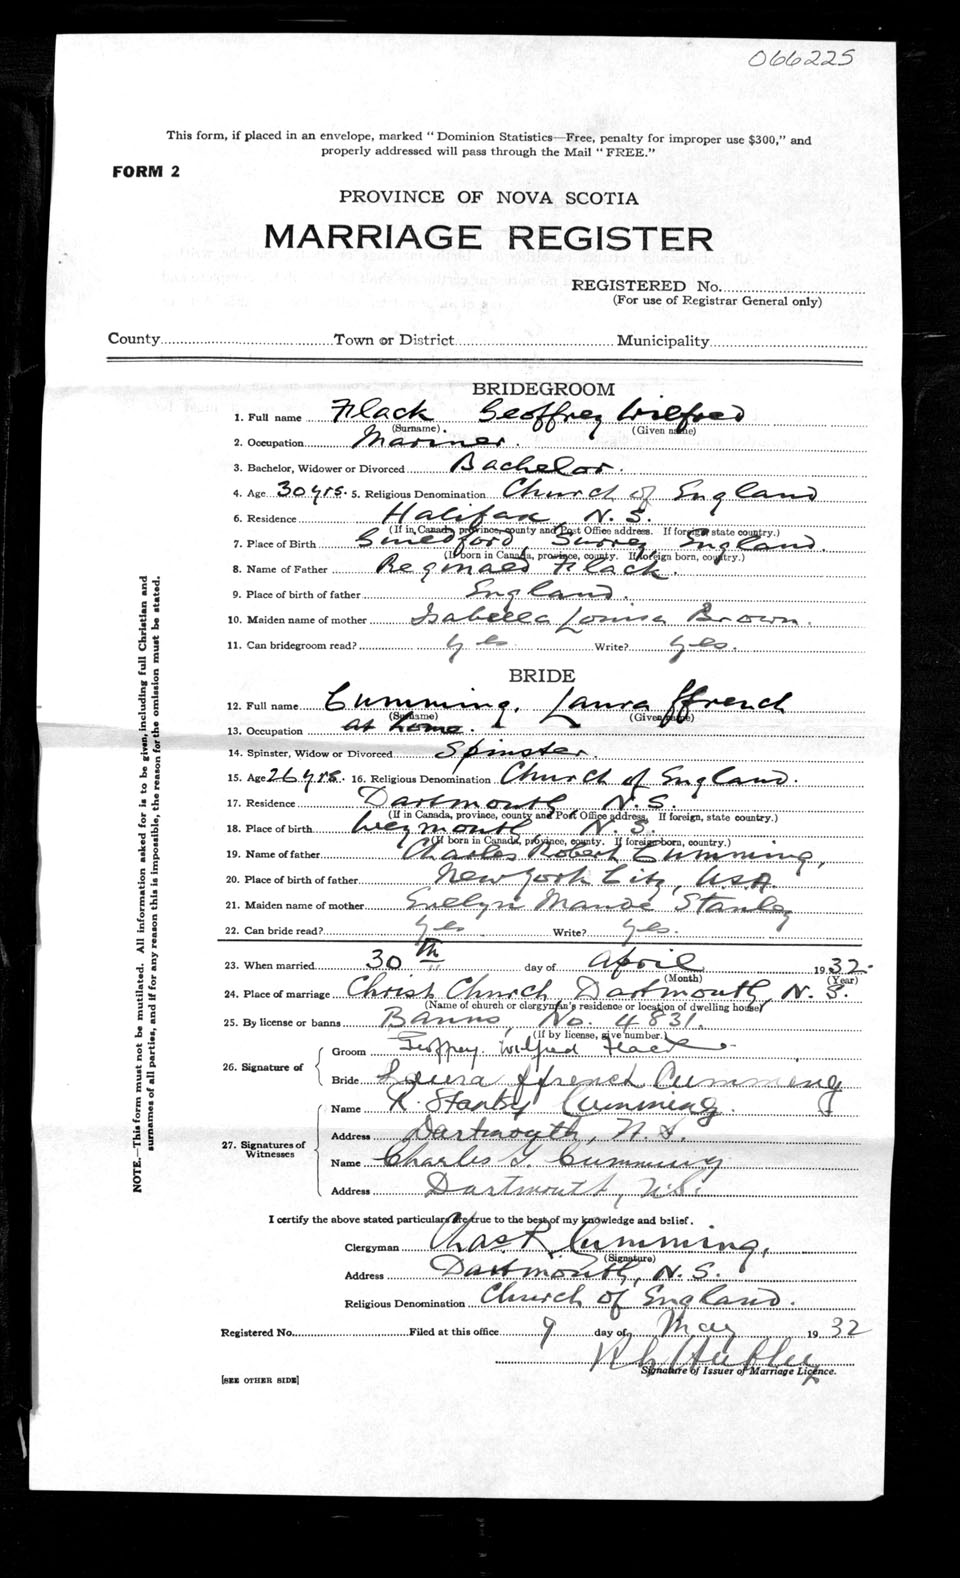 066225
This form, if placed in an envelope, marked "Dominion Statistics—Free, penalty for improper use $300," and
properly addressed will pass through the Mail "FREE."
FORM 2
PROVINCE OF NOVA SCOTIA
MARRIAGE REGISTER
REGISTERED No.
(For use of Registrar General only)
County Town or District Municipality
BRIDEGROOM
1. Full name Flack Geoffrey Wilfred
(Surname) (Given name)
2. Occupation Mariner.
3. Bachelor, Widower or Divorced Bachelor.
4. Age 30 yrs. 5. Religious Denomination Church of England
6. Residence Halifax, N.S.
(If in Canada, province, county and Post Office address. If foreign, state country.)
7. Place of Birth Guildford Surrey England.
(If born in Canada, province, county. If foreign born, country.)
8. Name of Father Reginald Flack.
9. Place of birth of father England.
10. Maiden name of mother Isabella Louisa Brown.
11. Can bridegroom read? yes Write? yes.
BRIDE
12. Full name Cumming, Laura ffrench
(Surname) (Given name)
13. Occupation at home.
14. Spinster, Widow or Divorced Spinster.
15. Age 26 yrs. 16. Religious Denomination Church of England.
17. Residence Dartmouth, N.S.
(If in Canada, province, county and Post Office address. If foreign, state country.)
18. Place of birth Weymouth, N.S.
(If born in Canada, province, county. If foreign born, country.)
19. Name of father Charles Robert Cumming,
20. Place of birth of father New York City, U.S.A.
21. Maiden name of mother Evelyn Maude Stanley
22. Can bride read? yes Write? yes.
23. When married 30th day of April 1932.
(Month) (Year)
24. Place of marriage Christ Church, Dartmouth, N.S.
(Name of church or clergyman's residence or location of dwelling house)
25. By license or banns Banns, No. 4831.
(If by license, give number.)
26. Signature of Groom Geoffrey Wilfred Flack
Bride Laura ffrench Cumming
27. Signatures of Witnesses Name R. Stanley Cumming.
Address Dartmouth, N.S.
Name Charles G. Cumming
Address Dartmouth, N.S.
I certify the above stated particulars are true to the best of my knowledge and belief.
Clergyman Chas. R. Cumming,
(Signature)
Address Dartmouth, N.S.
Religious Denomination Church of England.
Registered No. Filed at this office 9 day of May 1932
Signature of Issuer of Marriage Licence.
[SEE OTHER SIDE]
NOTE.—This form must not be mutilated. All information asked for is to be given, including full Christian and
surnames of all parties, and if for any reason this is impossible, the reason for the omission must be stated.